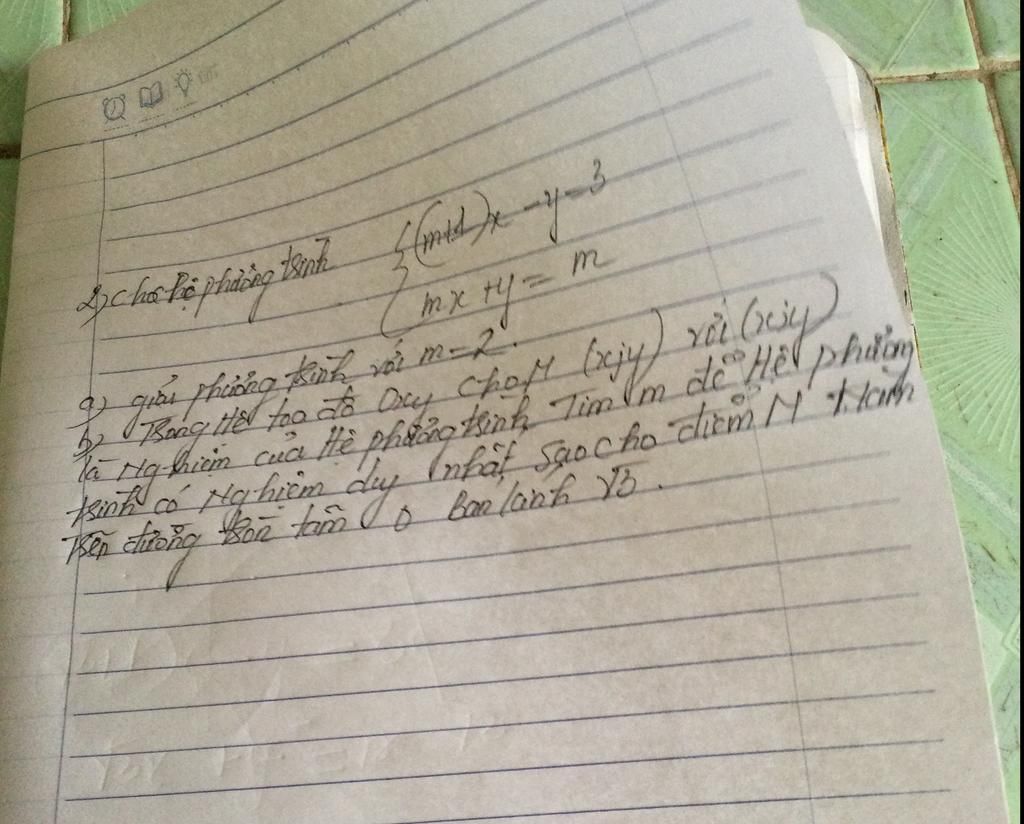 2) Cho hệ phương trình { (m+1)x - y = 3
mx + y = m
a) giải phương trình với m = 2.
b) Trong Hệ toạ độ Oxy cho M (x;y) với (x;y)
là Nghiệm của Hệ phương trình. Tìm m để Hệ phương
trình có Nghiệm duy nhất, sao cho điểm M Nằm
Trên đường tròn tâm O bán kính √5.